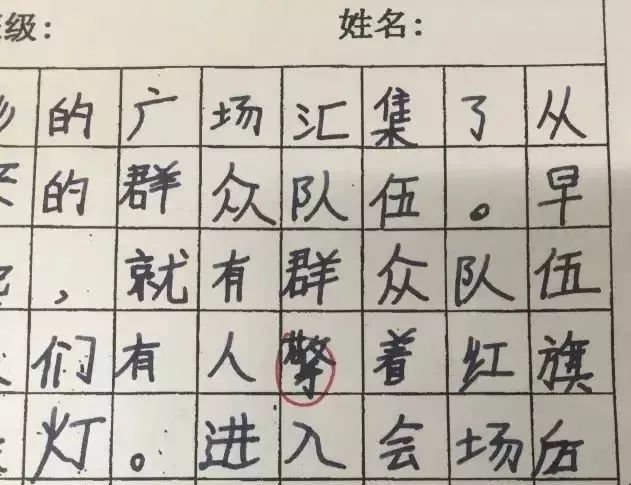 级: 姓名:
的广场汇集了从
的群众队伍。早
，就有群众队伍
们有人擎着红旗
灯。进入会场后